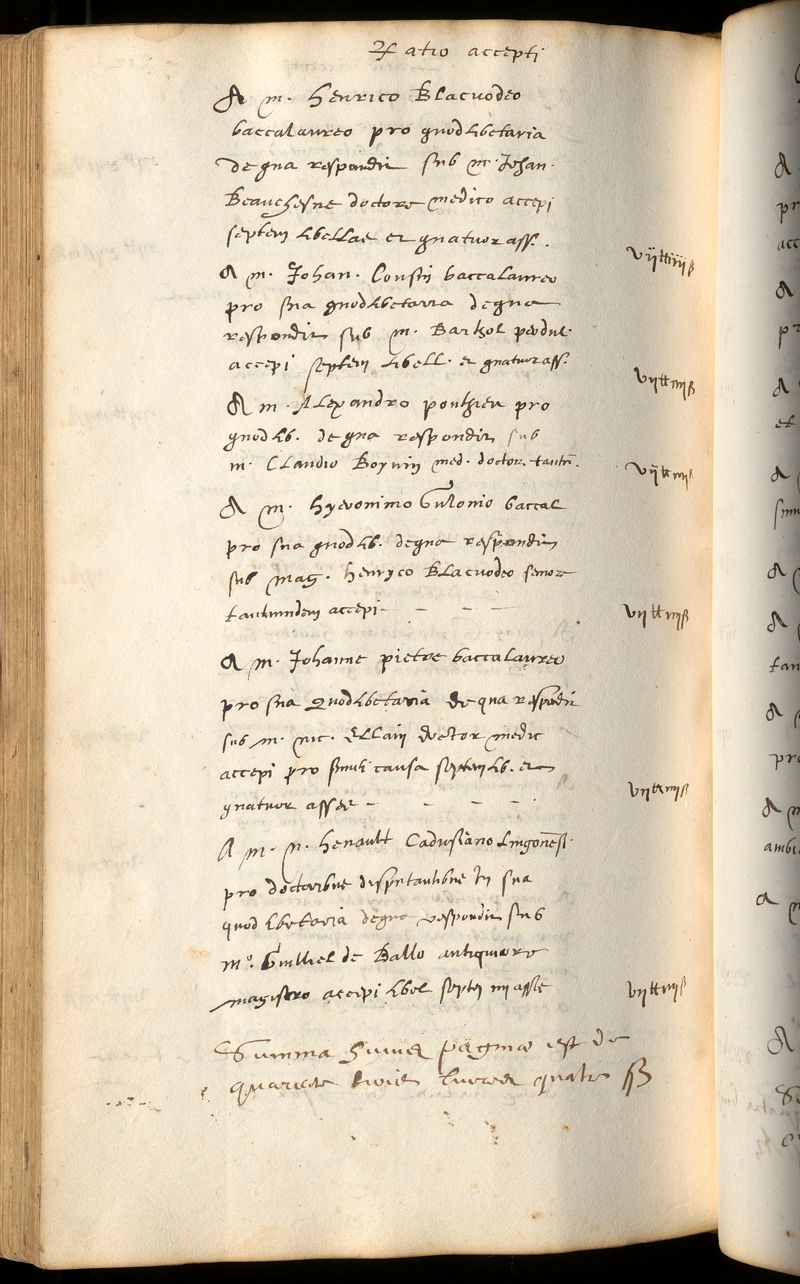 Ratio accepti
A m. Henrico Blacuodeo
baccalaureo pro quodlibetaria
de qua respondit sub m. Johan.
Beauchesne doctore medico accepi
septem libellas et quatuor ass.
vij tt iiij ß
A m. Johan. Cousin baccalaureo
pro sua quodlibetaria de qua
respondit sub m. Barthol perdul.
accepi septem libell. et quatuor ass.
vij tt iiij ß
A m. Alexandro pouthieu pro
quodlib. de qua respondit sub
m. Claudio Boyvin med. doctor. tantū.
vij tt iiij ß
A m. Hyeronimo baccal
pro sua quodlib. de qua respondit
sub mag. Henryco Blacuodeo senore
tantumdem accepi - - - -
vij tt iiij ß
A m. Johanne pietre baccalaureo
pro sua Quodlibetaria de qua respōdit
sub m. nic. Ellain doctor medic
accepi pro simili causa septem lib. et
quatuor asses - - - -
vij tt iiij ß
A m. n. Henault Cadusiano Lingonensi.
pro doctoribus disputantibus in sua
quodlibetaria de qua respondit sub
mo. Guilliel de Ballo antiquiore
magistro accepi libel septē iiij asse
vij tt iiij ß
Summa huius paginae est de
quarante trois livres quatre ß